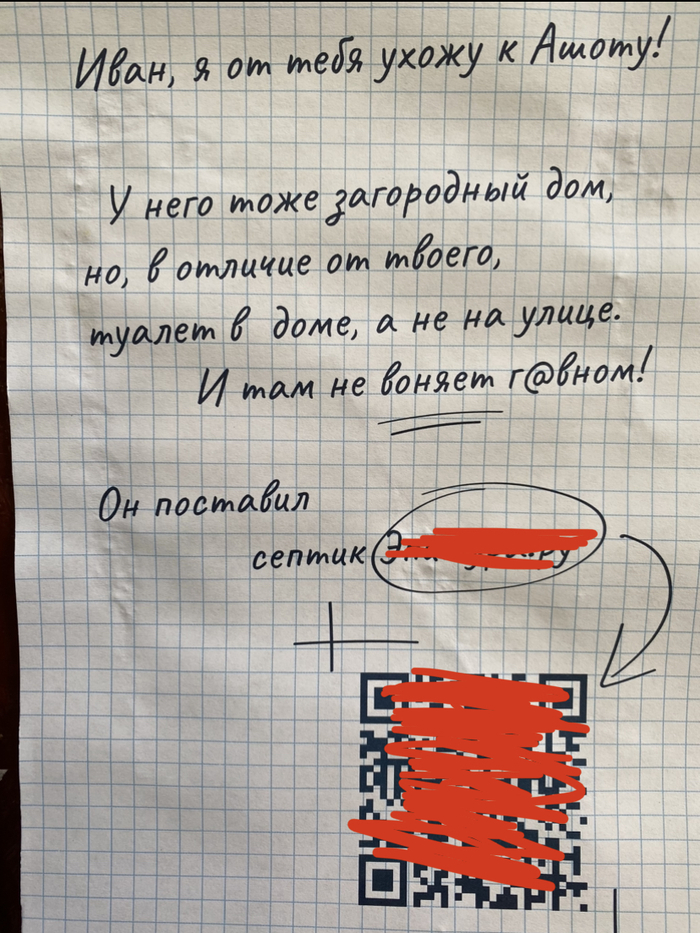 Иван, я от тебя ухожу к Ашоту!
У него тоже загородный дом,
но, в отличие от твоего,
туалет в доме, а не на улице.
И там не воняет г@вном!
Он поставил
септик